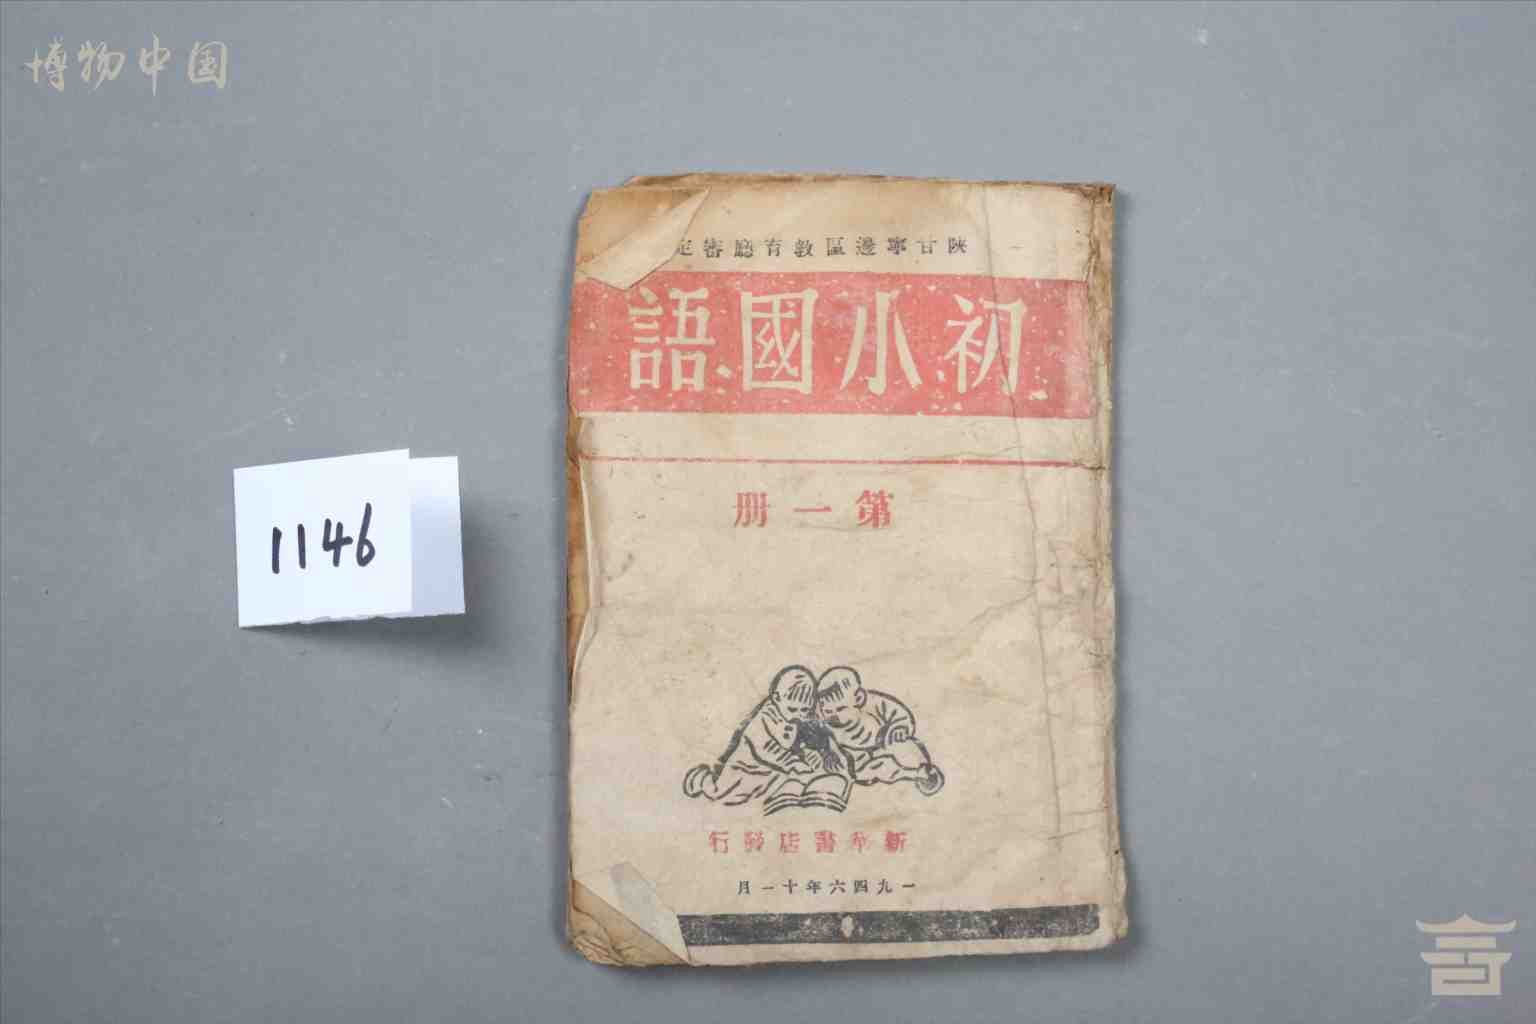 博物中国
陝甘寧邊區教育廳審定
初小國語
第一册
新華書店發行
一九四六年十一月
1146